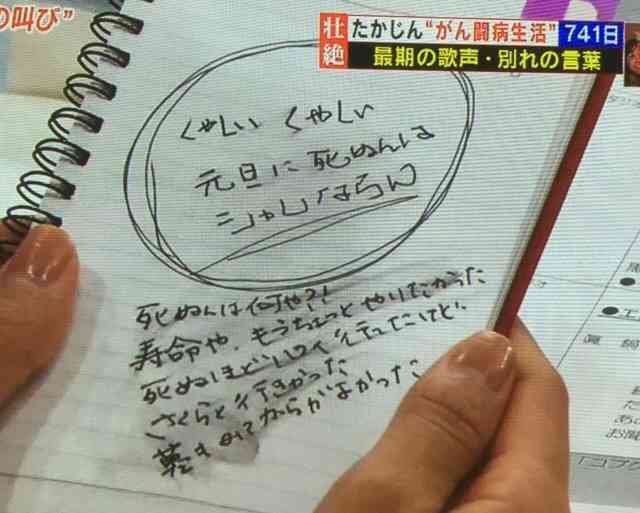 の叫び”
壮絶
たかじん“がん闘病生活”741日
最期の歌声・別れの言葉
くやしい くやしい
元旦に死ぬんは
シャレんならん
死ぬんは何や?!
寿命や、もうちょっとやりたかった
死ぬほどハワイ行ったけど
さくらと行きたかった
からがよかった